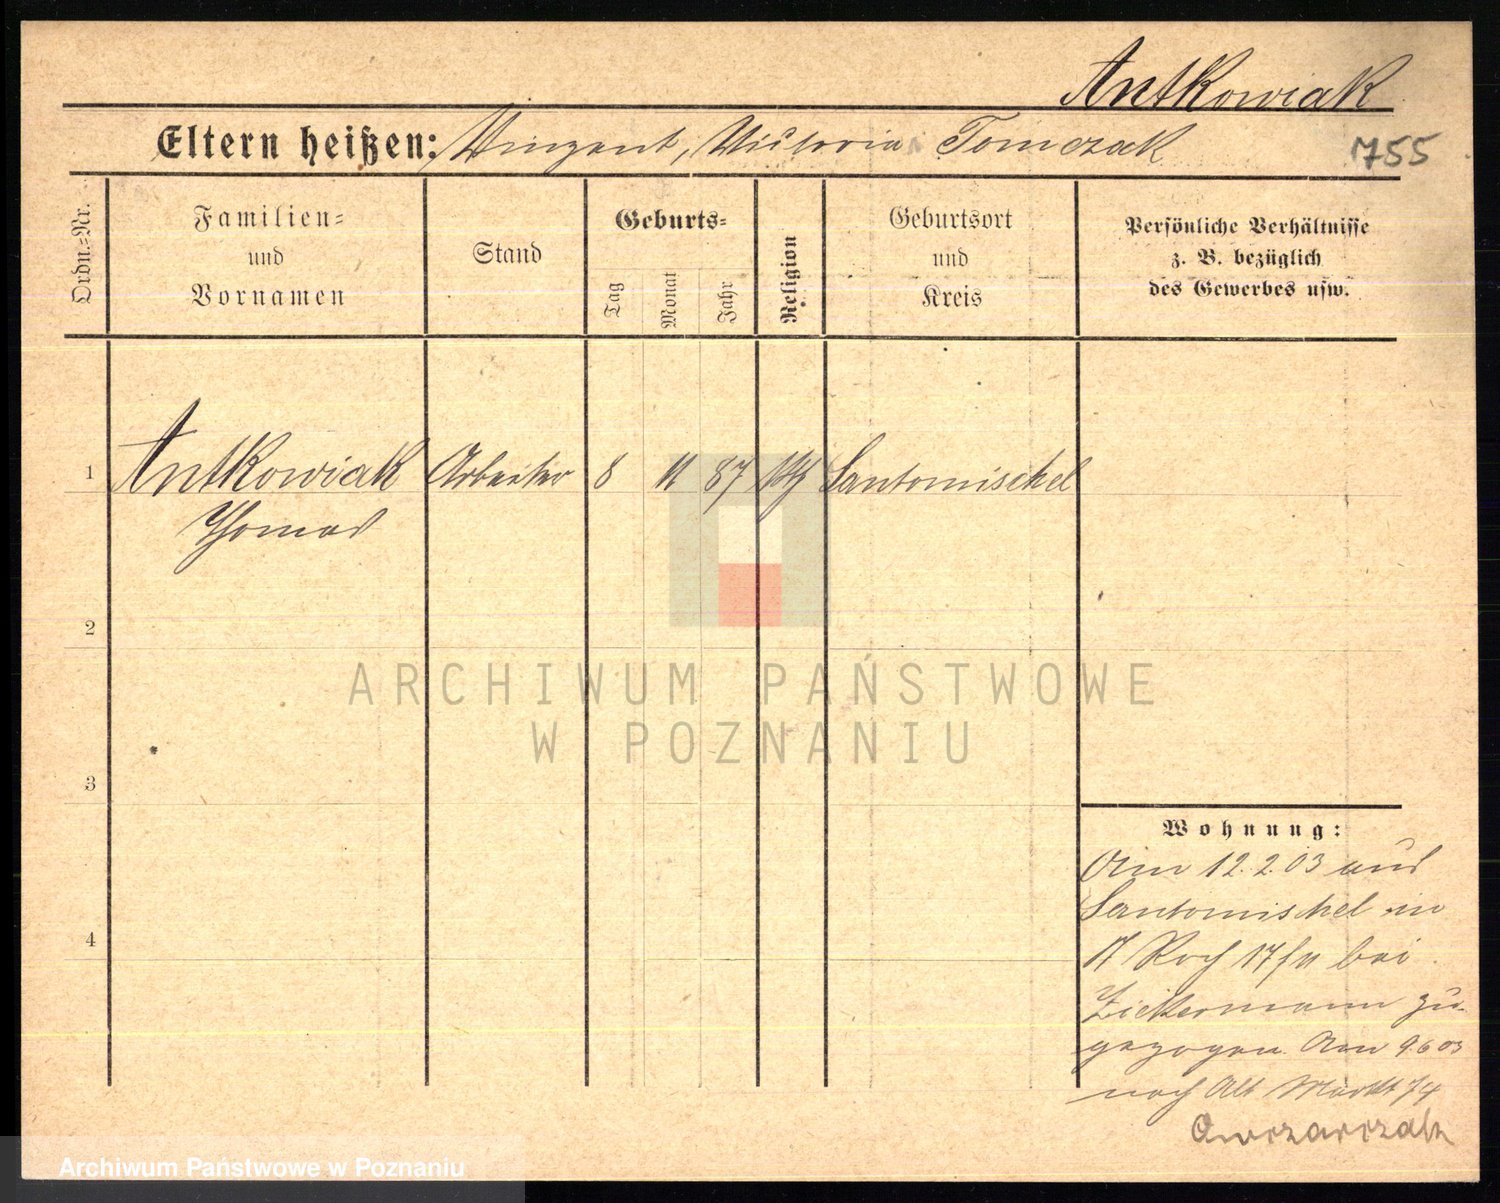 Antkowiak
Eltern heißen: Vinzent, Victoria Tomczak
755
Ordn=Nr.
Familien=
und
Vornamen
Stand
Geburts=
Tag
Monat
Jahr
Religion
Geburtsort
und
Kreis
Persönliche Verhältnisse
z. B. bezüglich
des Gewerbes usw.
1 Antkowiak Arbeiter 8 11 87 kth Santomischel
Thomas
2
3
4
Wohnung:
Am 12.2.03 aus
Santomischel in
Roch 17/11 bei
Zickermann zu-
gezogen. Am 9.6 03
nach Alt Markt 74
Owczarczak
ARCHIWUM PAŃSTWOWE
W POZNANIU
Archiwum Państwowe w Poznaniu